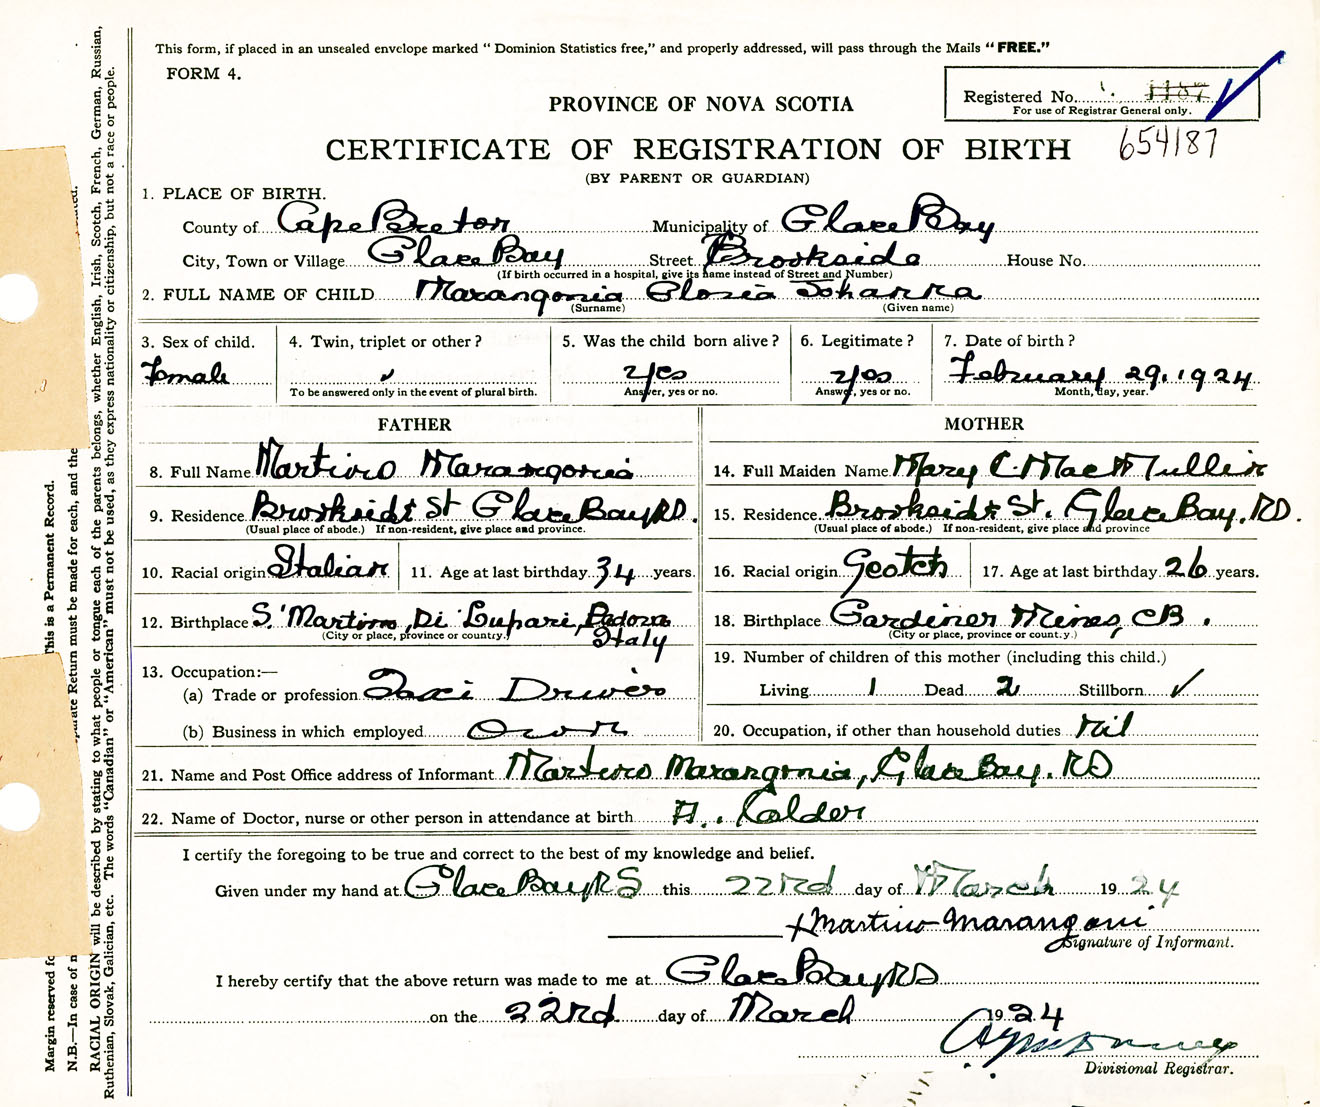 This form, if placed in an unsealed envelope marked “ Dominion Statistics free,” and properly addressed, will pass through the Mails “FREE.”
FORM 4.
Registered No. 1187
For use of Registrar General only.
654187
PROVINCE OF NOVA SCOTIA
CERTIFICATE OF REGISTRATION OF BIRTH
(BY PARENT OR GUARDIAN)
1. PLACE OF BIRTH.
County of Cape Breton Municipality of Glace Bay
City, Town or Village Glace Bay Street Brookside House No.
(If birth occurred in a hospital, give its name instead of Street and Number)
2. FULL NAME OF CHILD Marangonia Gloria Johanna
(Surname) (Given name)
3. Sex of child. 4. Twin, triplet or other? 5. Was the child born alive? 6. Legitimate? 7. Date of birth?
Female ✓ yes yes February 29, 1924
To be answered only in the event of plural birth. Answer, yes or no. Answer, yes or no. Month, day, year.
FATHER MOTHER
8. Full Name Martino Marangonia 14. Full Maiden Name Mary C. MacMullin
9. Residence Brookside St Glace Bay RD. 15. Residence Brookside St. Glace Bay. RD.
(Usual place of abode.) If non-resident, give place and province. (Usual place of abode.) If non-resident, give place and province
10. Racial origin Italian 11. Age at last birthday 34 years. 16. Racial origin Scotch 17. Age at last birthday 26 years.
12. Birthplace S. Martino, Di Lupari, Padova Italy 18. Birthplace Gardiner Mines, CB.
(City or place, province or country.) (City or place, province or count.y.)
13. Occupation:— 19. Number of children of this mother (including this child.)
(a) Trade or profession Taxi Driver Living 1 Dead 2 Stillborn ✓
(b) Business in which employed Own 20. Occupation, if other than household duties Nil
21. Name and Post Office address of Informant Martino Marangonia, Glace Bay. RD
22. Name of Doctor, nurse or other person in attendance at birth A. Calder
I certify the foregoing to be true and correct to the best of my knowledge and belief.
Given under my hand at Glace Bay RD this 22nd day of March 1924
+Martino Marangoni
Signature of Informant.
I hereby certify that the above return was made to me at Glace Bay RD
on the 22nd day of March 1924
Divisional Registrar.
Margin reserved fo
This is a Permanent Record.
N.B.—In case of m
parate Return must be made for each, and the
RACIAL ORIGIN will be described by stating to what people or tongue each of the parents belongs, whether English, Irish, Scotch, French, German, Russian,
Ruthenian, Slovak, Galician, etc. The words “Canadian” or “American” must not be used, as they express nationality or citizenship, but not a race or people.